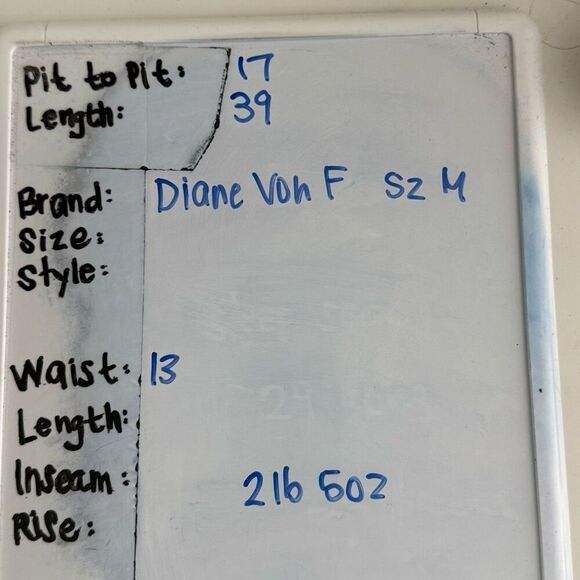 Pit to Pit: 17
Length: 39
Brand: Diane Von F SZ M
Size:
Style:
Waist: 13
Length:
Inseam: 2lb 5oz
Rise: